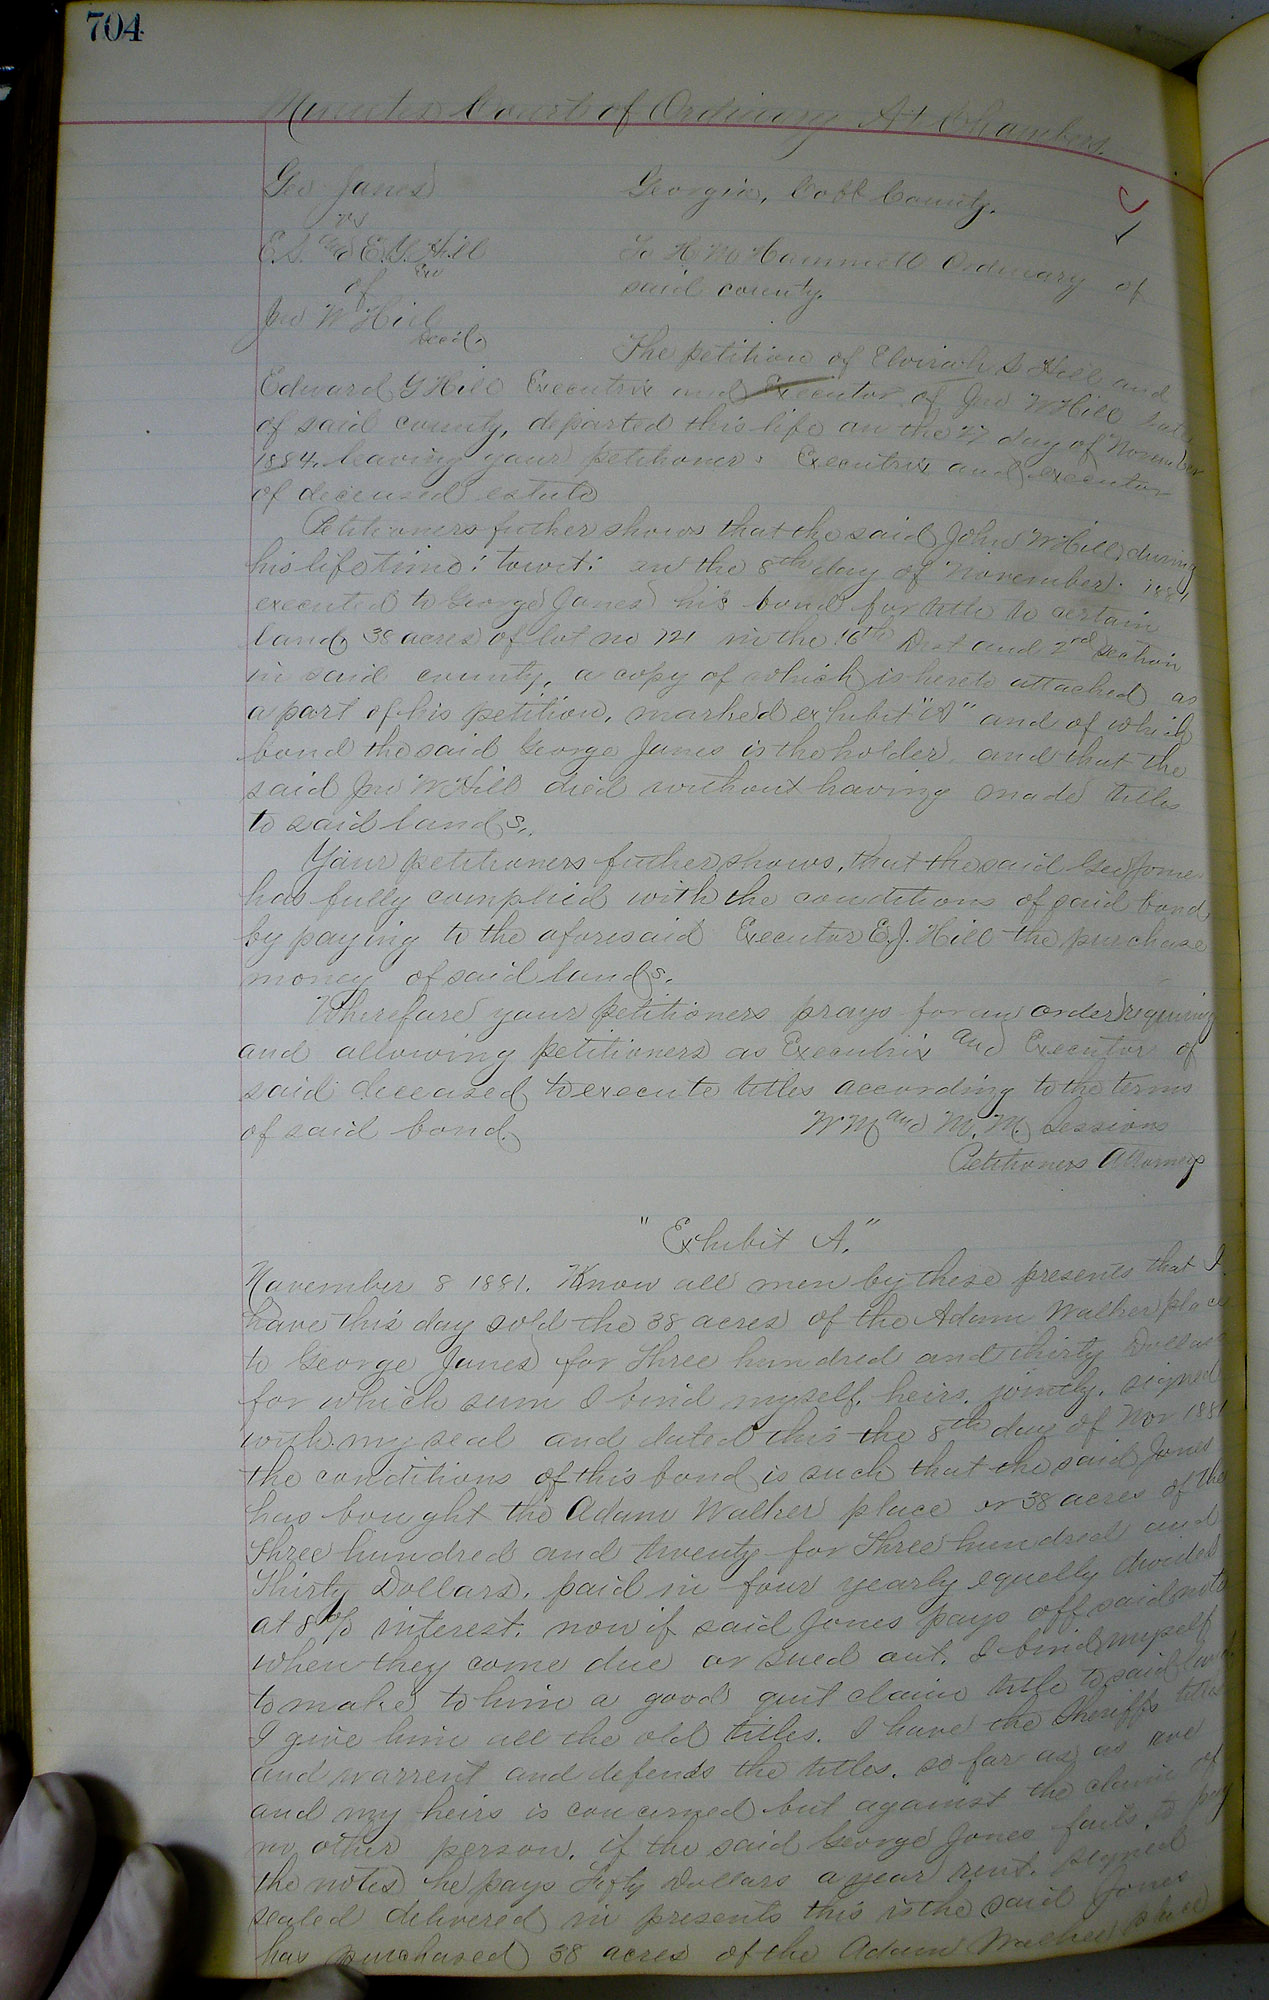 704
Minutes Court of Ordinary At Chambers.
Geo Jones
vs
E.S. and E.G. Hill
Exr
of
Jno W Hill
Decd.
Georgia, Cobb County.
To H M Hammett Ordinary of
said county.
The petition of Elvirah S Hill and
Edward G Hill Executrix and Executor of Jno W Hill late
of said county, departed this life on the 27 day of November
1884. leaving your petitioners Executrix and executor
of deceased estate
Petitioners futher shows that the said John W Hill, during
his life time: towit: on the 8th day of November 1881
executed to George Jones his bond for title to certain
land, 38 acres of lot no 721 in the 16th Dist and 2nd Section
in said county, a copy of which is hereto attached as
a part of his petition, marked exhibit "A" and of which
bond the said George Jones is the holder, and that the
said Jno W Hill died without having made titles
to said lands,.
Your petitioners futher shows, that the said Geo Jones
has fully complied with the conditions of said bond
by paying to the aforesaid Executor E.J. Hill the purchase
money of said lands.
Wherefore your petitioners prays for an order requiring
and allowing petitioners as Executrix and Executor of
said deceased to execute titles according to the terms
of said bond.
W M and M. M. Sessions
Petitioners Attorneys
"Exhibit A."
November 8 1881. Know all men by these presents that I
have this day sold the 38 acres of the Adam Walker place
to George Jones for Three hundred and thirty Dollars
for which sum I bind myself, heirs, jointly. signed
with my seal and dated this the 8th day of Nov 1881
the conditions of this bond is such that the said Jones
has bought the Adam Walker place or 38 acres of the
Three hundred and twenty for Three hundred and
Thirty Dollars. paid in four yearly equelly divided
at 8 % interest. now if said Jones pays off said note
when they come due or sued out. I bind myself
to make to him a good quit claim title to said land.
I give him all the old titles. I have the Sheriffs titles
and warrent and defends the titles. so far as as me
and my heirs is concerned but against the claim of
no other person. if the said George Jones fails to pay
the notes he pays Fifty Dollars a year rent. signed
sealed delivered in presents this is the said Jones
has purchased 38 acres of the Adam Walker place